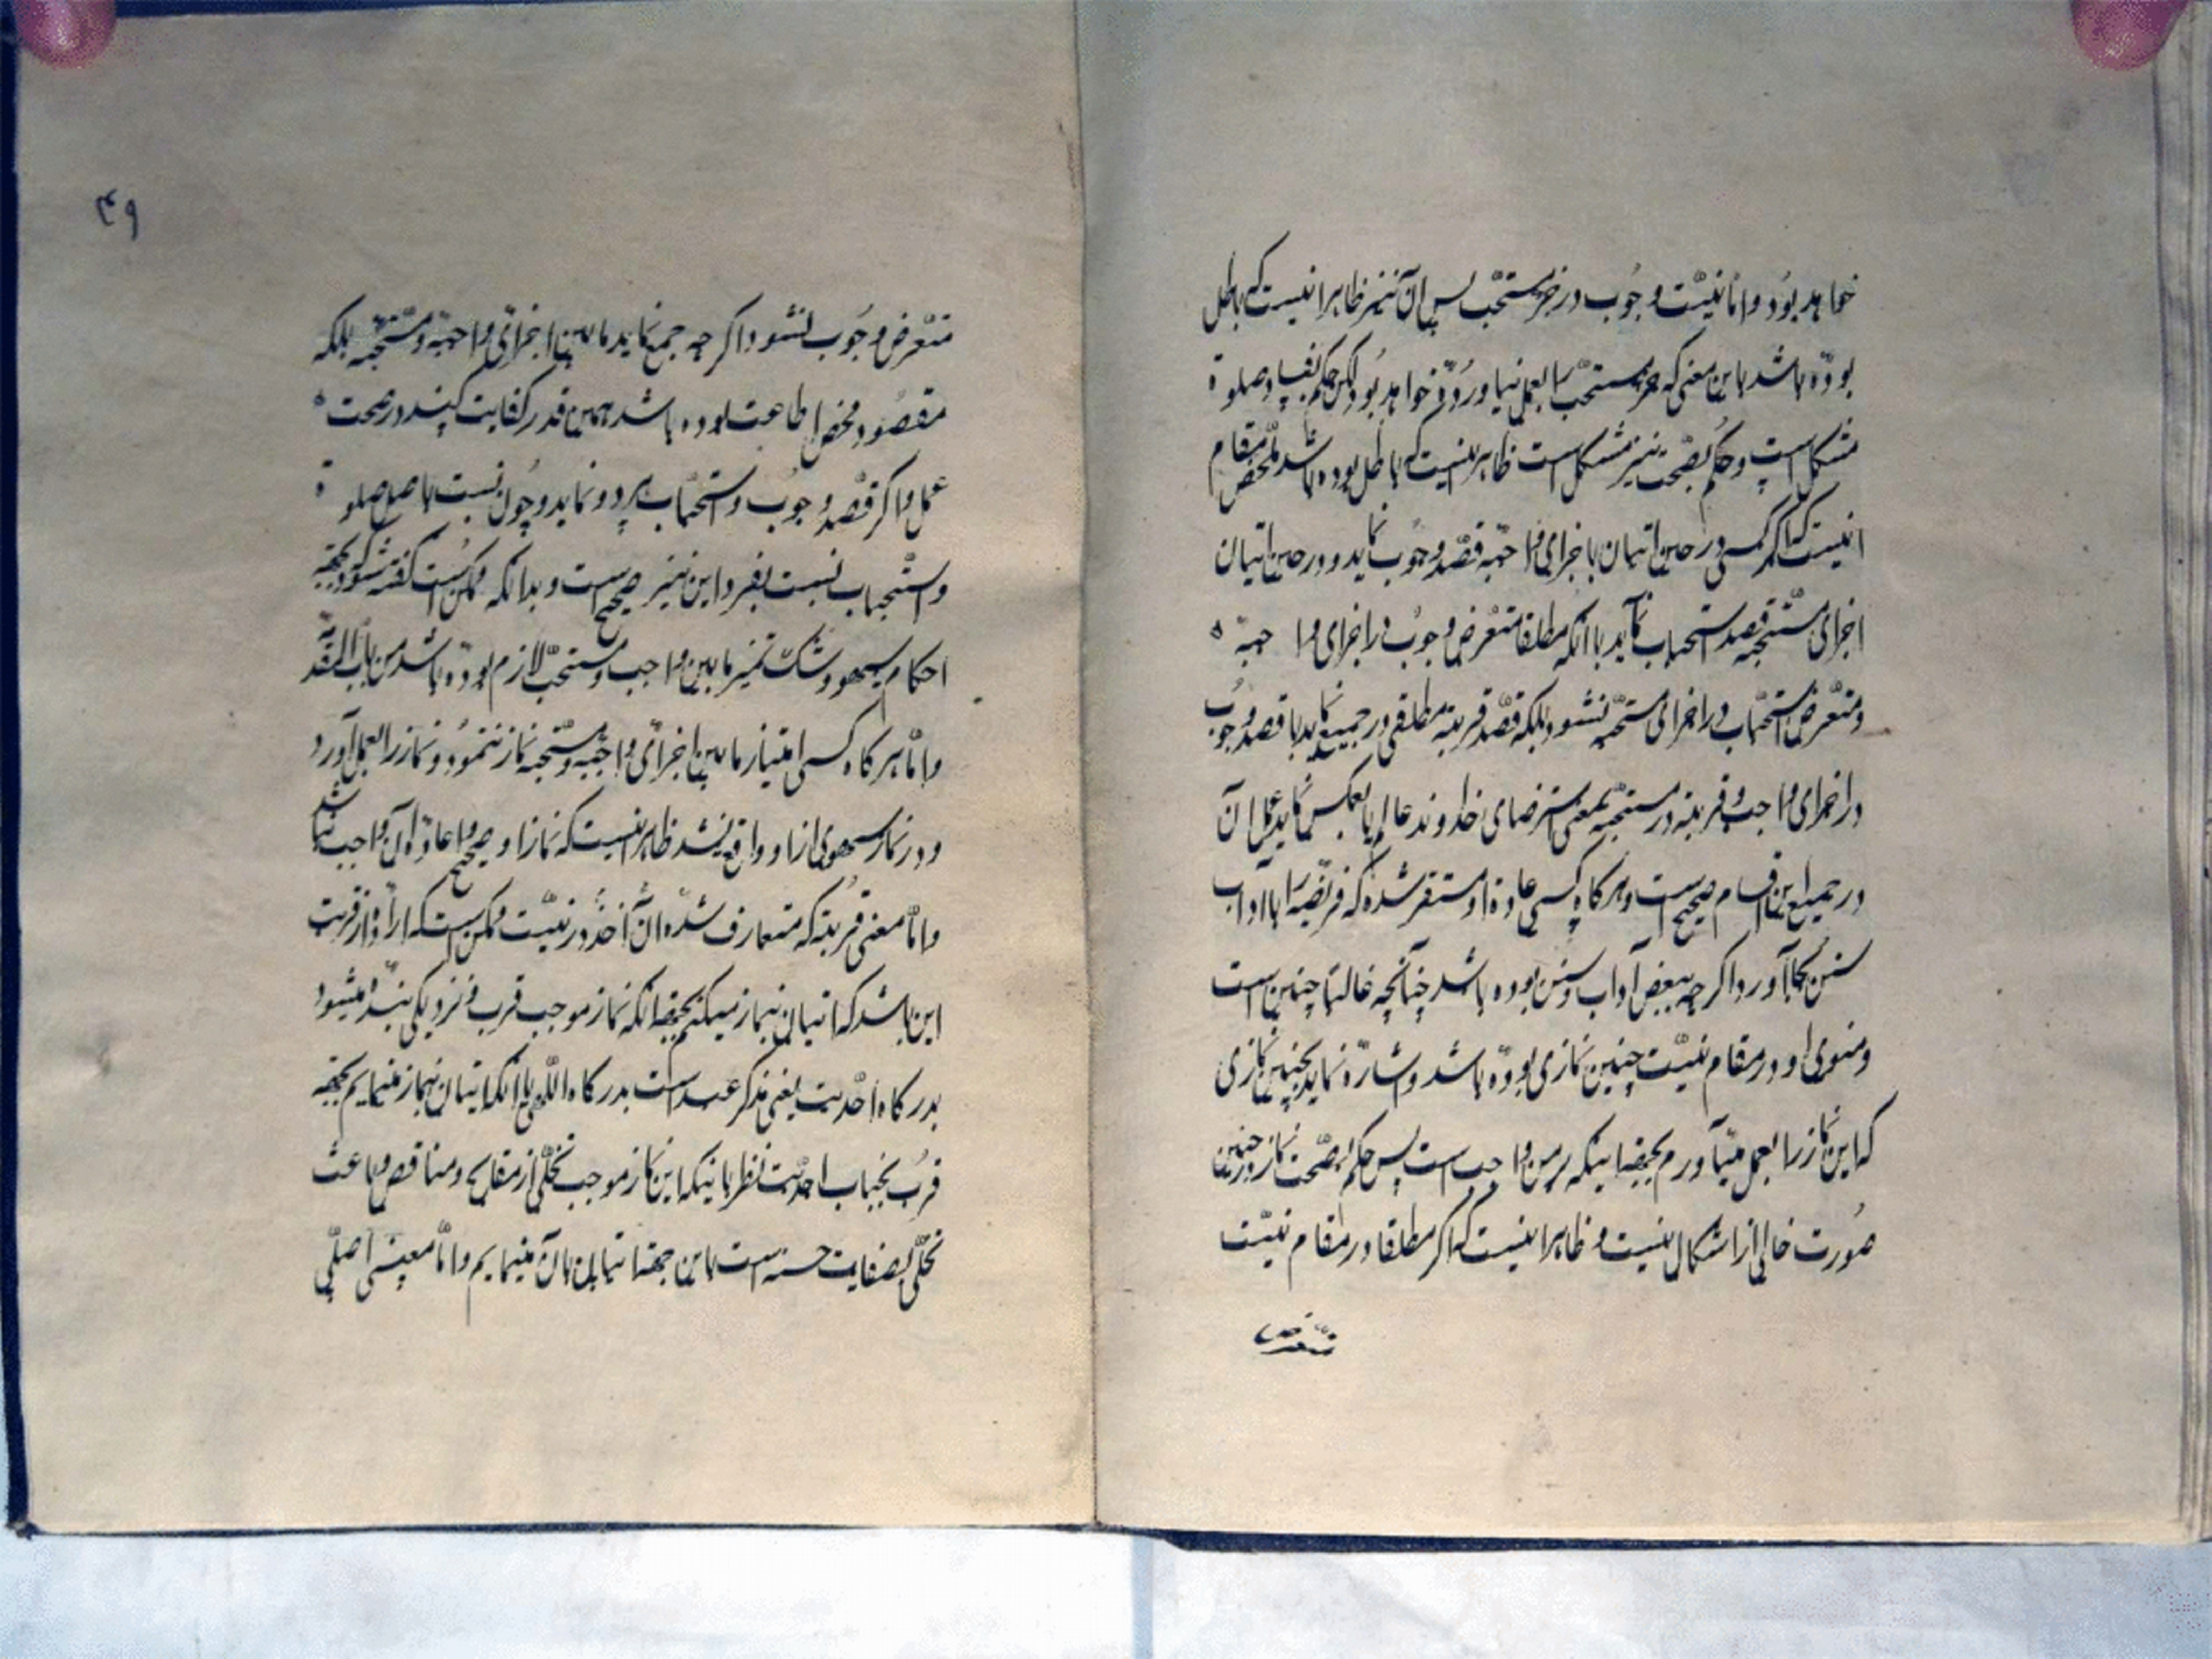 خواهد بود و اما نیّت وجوب در جزء مستحب پس آن نیز ظاهرا نیست که باطل
بوده باشد باین معنی که جزء مستحب را بعمل نیاورده خواهد بود لکن حکم بفساد صلوة
مشکل است و حکم بصحت نیز مشکل است ظاهر اینست که باطل بوده باشد ملخص مقام
اینست که اگر کسی در حین اتیان باجزای واجبه قصد وجوب نماید و در حین اتیان
اجزای مستحبه قصد استحباب نماید یا آنکه مطلقا متعرض وجوب در اجزای واجبه
و متعرض استحباب در اجزای مستحبه نشود بلکه قصد قربة مطلقی در جمیع نماید یا قصد وجوب
در اجزای واجب و قربة در مستحبه بمعنی استرضای خداوند عالم یا بعکس نماید عمل آن
در جمیع این اقسام صحیح است و هر گاه کسی عادة او مستقر شده که فریضه را با آداب
سنن بجا آورد اگر چه ببعض آداب و سنن بوده باشد چنانچه غالبا چنین است
و منوی او در مقام نیّت چنین نمازی بوده باشد و اشاره نماید بچنین نمازی
که این نماز را بعمل میآورم بجهة اینکه بر من واجب است پس حکم بصحت نماز در چنین
صورت خالی از اشکال نیست و ظاهرا اینست که اگر مطلقا در مقام نیّت
متعرض
۴۹
متعرض وجوب نشود اگر چه جمع نماید ما بین اجزای واجبه و مستحبه بلکه
مقصود محض اطاعت بوده باشد همین قدر کفایت کند در صحت
عمل و اگر قصد وجوب و استحباب هر دو نماید وجوب نسبت باصل صلوة
و استحباب نسبت بفرد این نیز صحیح است و بدانکه ممکن است گفته شود بجهة
احکام سهو و شک تمیز ما بین واجب و مستحب لازم بوده باشد من باب المقدمة
و اما هر گاه کسی امتیاز ما بین اجزای واجبه و مستحبه نماز ننمود و نماز را بعمل آورد
و در نماز سهوی از او واقع نشد ظاهر اینست که نماز او صحیح و اعاده آن واجب نباشد
و اما معنی قربة که متعارف شده آن اخذ در نیّت ممکن است که اراده از قربت
این باشد که اتیان بنماز میکنم بجهة آنکه نماز موجب قرب و نزدیکی بنده میشود
بدرگاه احدیت یعنی مذکر عبد است بدرگاه اللهی یا آنکه اتیان بنماز مینمایم بجهة
قرب بجناب احدیت نظر باینکه این نماز موجب تخلی از مقابح و مناقص و باعث
تحلی بصفات حسنه است باین جهة اتیان بآن مینمایم و اما معنی اصلی